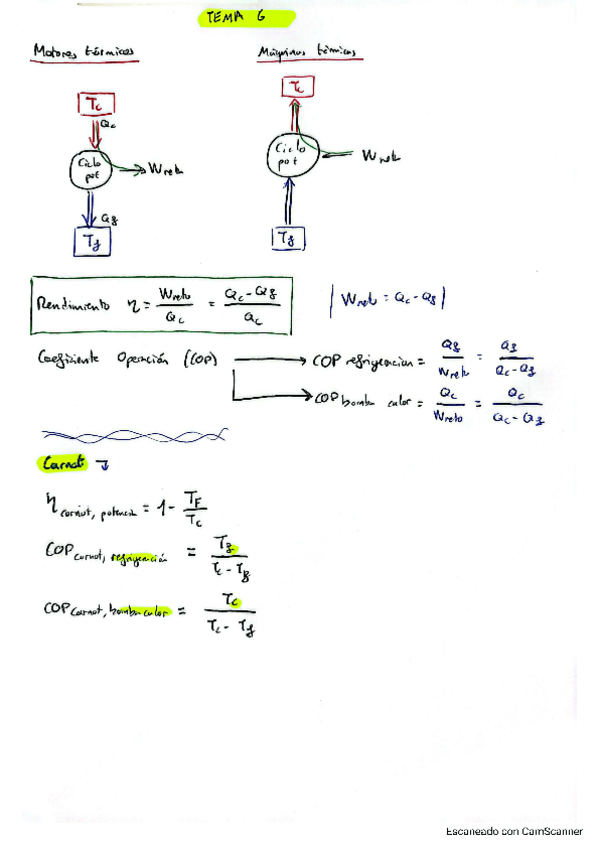 TEMA 6
Motores térmicos
Máquinas térmicas
Tc
Qc
Ciclo
pot
Wneto
Qf
Tf
Tc
Ciclo
pot
Wneto
Tf
Rendimiento η = Wneto / Qc = Qc - Qf / Qc
| Wneto = Qc - Qf |
Coeficiente Operación (COP)
COP refrigeracion = Qf / Wneto = Qf / Qc - Qf
COP bomba calor = Qc / Wneto = Qc / Qc - Qf
Carnot
η carnot, potencia = 1 - TF / Tc
COP carnot, refrigeración = Tf / Tc - Tf
COP Carnot, bomba calor = Tc / Tc - Tf
Escaneado con CamScanner